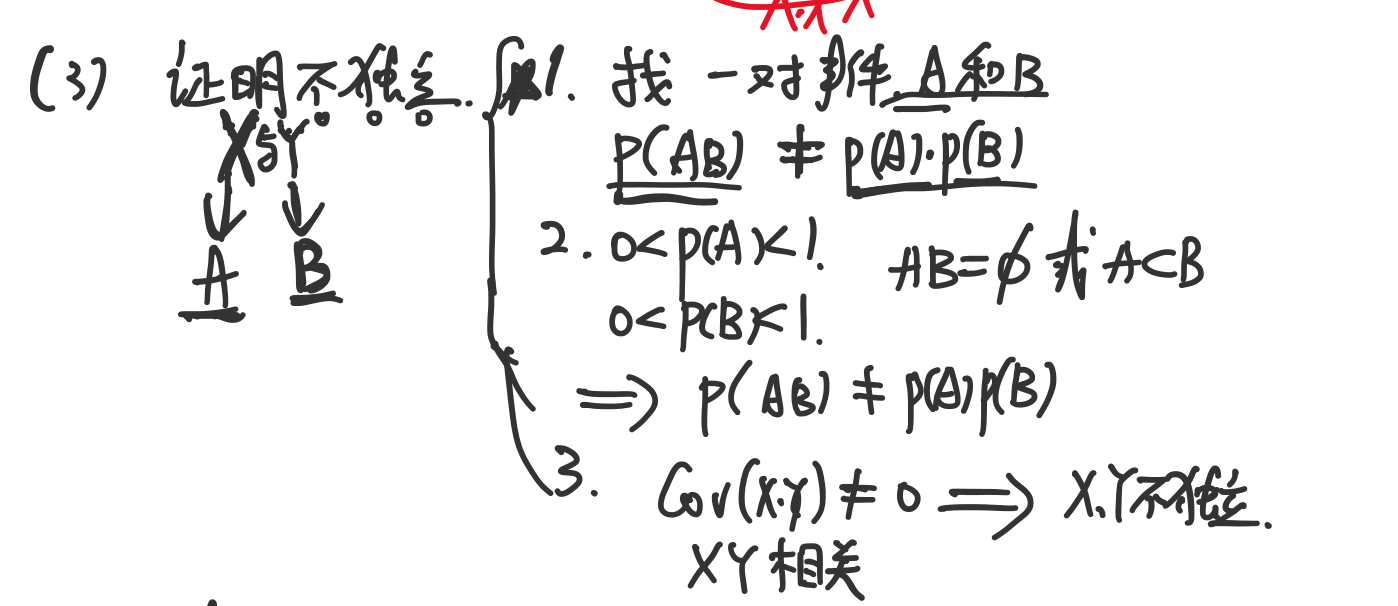 (3) 证明不独立.
X与Y
A B
1. 找一对事件 A和B
P(AB) ≠ P(A)·P(B)
2. 0<P(A)<1. AB=∅ 或 A⊂B
0<P(B)<1.
⇒ P(AB) ≠ P(A)P(B)
3. Cov(X.Y) ≠ 0 ⇒ X.Y不独立.
XY相关